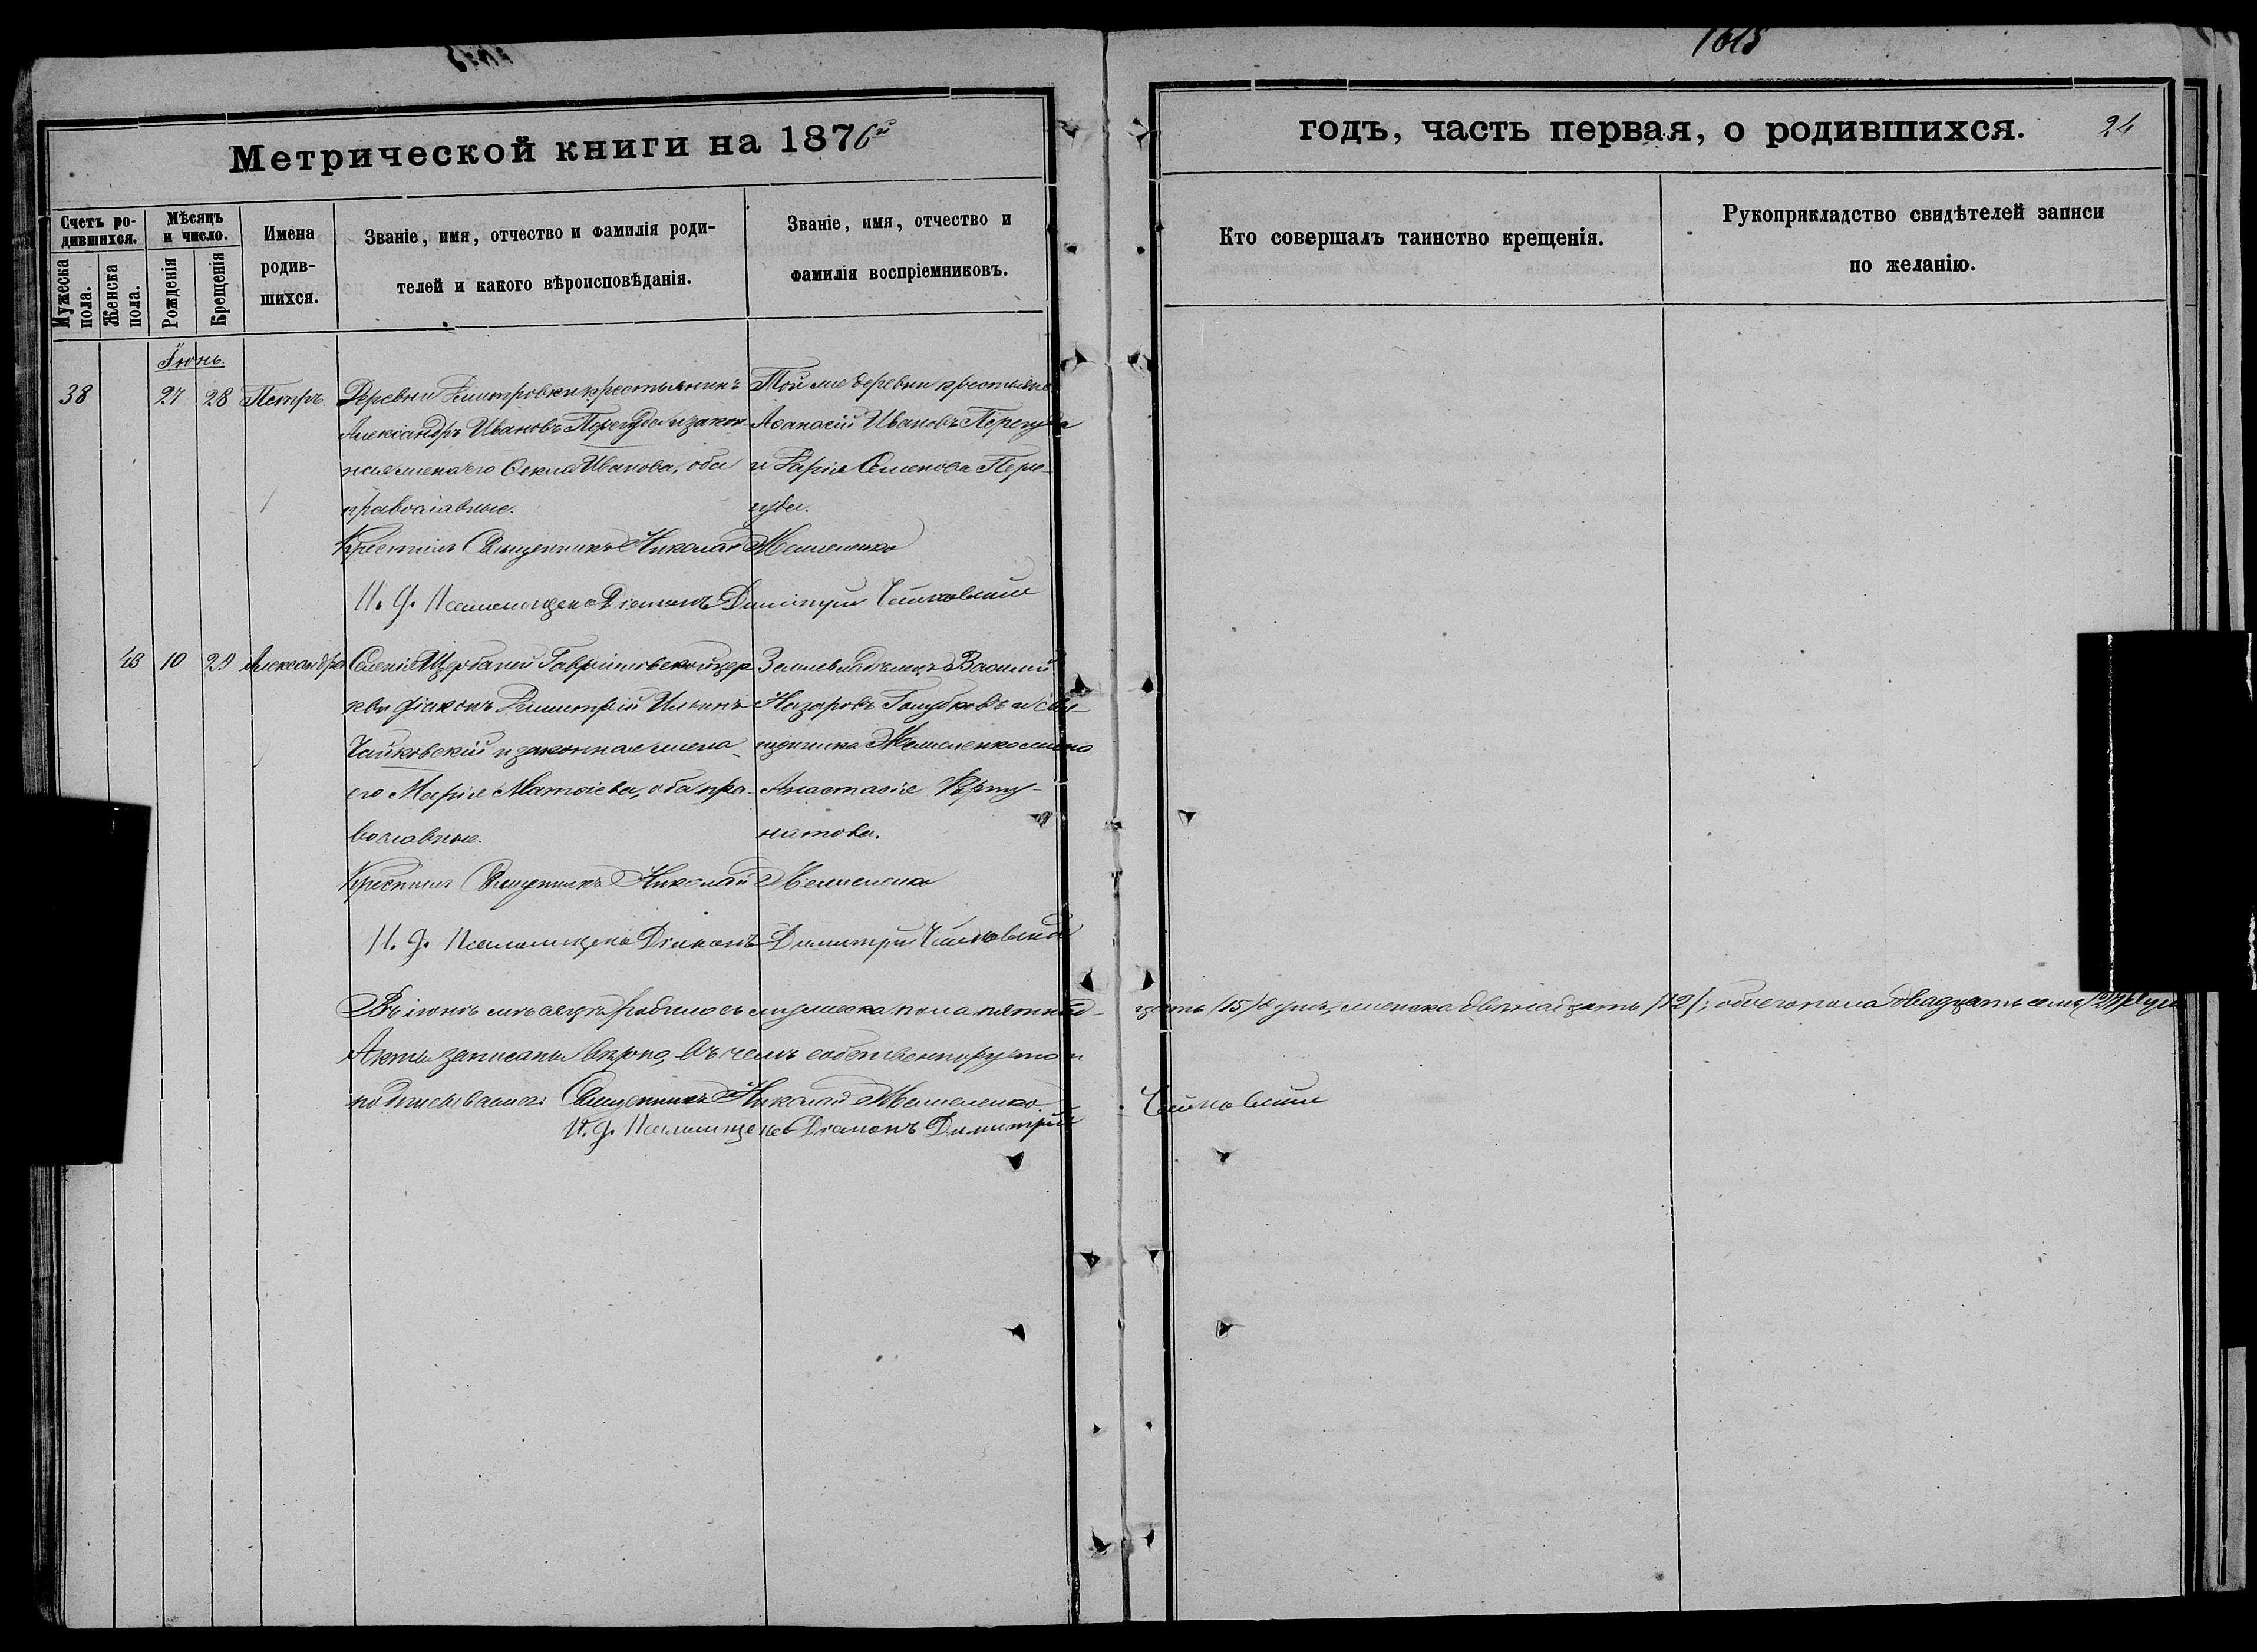 1615
Метрической книги на 1876й
годъ, часть первая, о родившихся.
24
Счетъ ро-
дившихся.
Мужеска пола.
Женска пола.
Мѣсяцъ
и число.
Рожденія
Крещенія
Имена
родив-
шихся.
Званіе, имя, отчество и фамилія роди-
телей и какого вѣроисповѣданія.
Званіе, имя, отчество и
фамилія воспріемниковъ.
Кто совершалъ таинство крещенія.
Рукоприкладство свидѣтелей записи
по желанію.
Іюнь.
38 27 28 Петръ. Деревни Димитровки крестьянинъ
Александръ Ивановъ Перегуда и закон-
ная жена его Ѳекла Иванова, оба
православные.
Той же деревни крестьяне
Аѳанасій Ивановъ Перегуда
и Дарія Семенова Пере-
губа.
Крестилъ Священникъ Николай
И. д. Псаломщика Діаконъ Димитрій Чайковскій
43 10 29 Александра Селенія Щербаней Гавріиловской цер-
кви діаконъ Димитрій Ильинъ
Чайковскій и законная жена
его Марія Матѳіева, оба пра-
вославные.
Землевладѣлецъ Василій
Назаровъ Голубковъ и свя-
щенника жена
Анастасія Форту-
натова.
Крестилъ Священникъ Николай
И. д. Псаломщика Діаконъ Димитрій Чайковскій
Въ іюнѣ мѣсяцѣ родилось мужеска пола пятнад-
цать /15/ душъ, женска двѣнадцать /12/; обоего пола двадцать семь /27/ душъ
Акты записаны вѣрно, въ чемъ собственноручно и
подписываемся: Священникъ Николай
И. д. Псаломщика Діаконъ Димитрій
Чайковскій